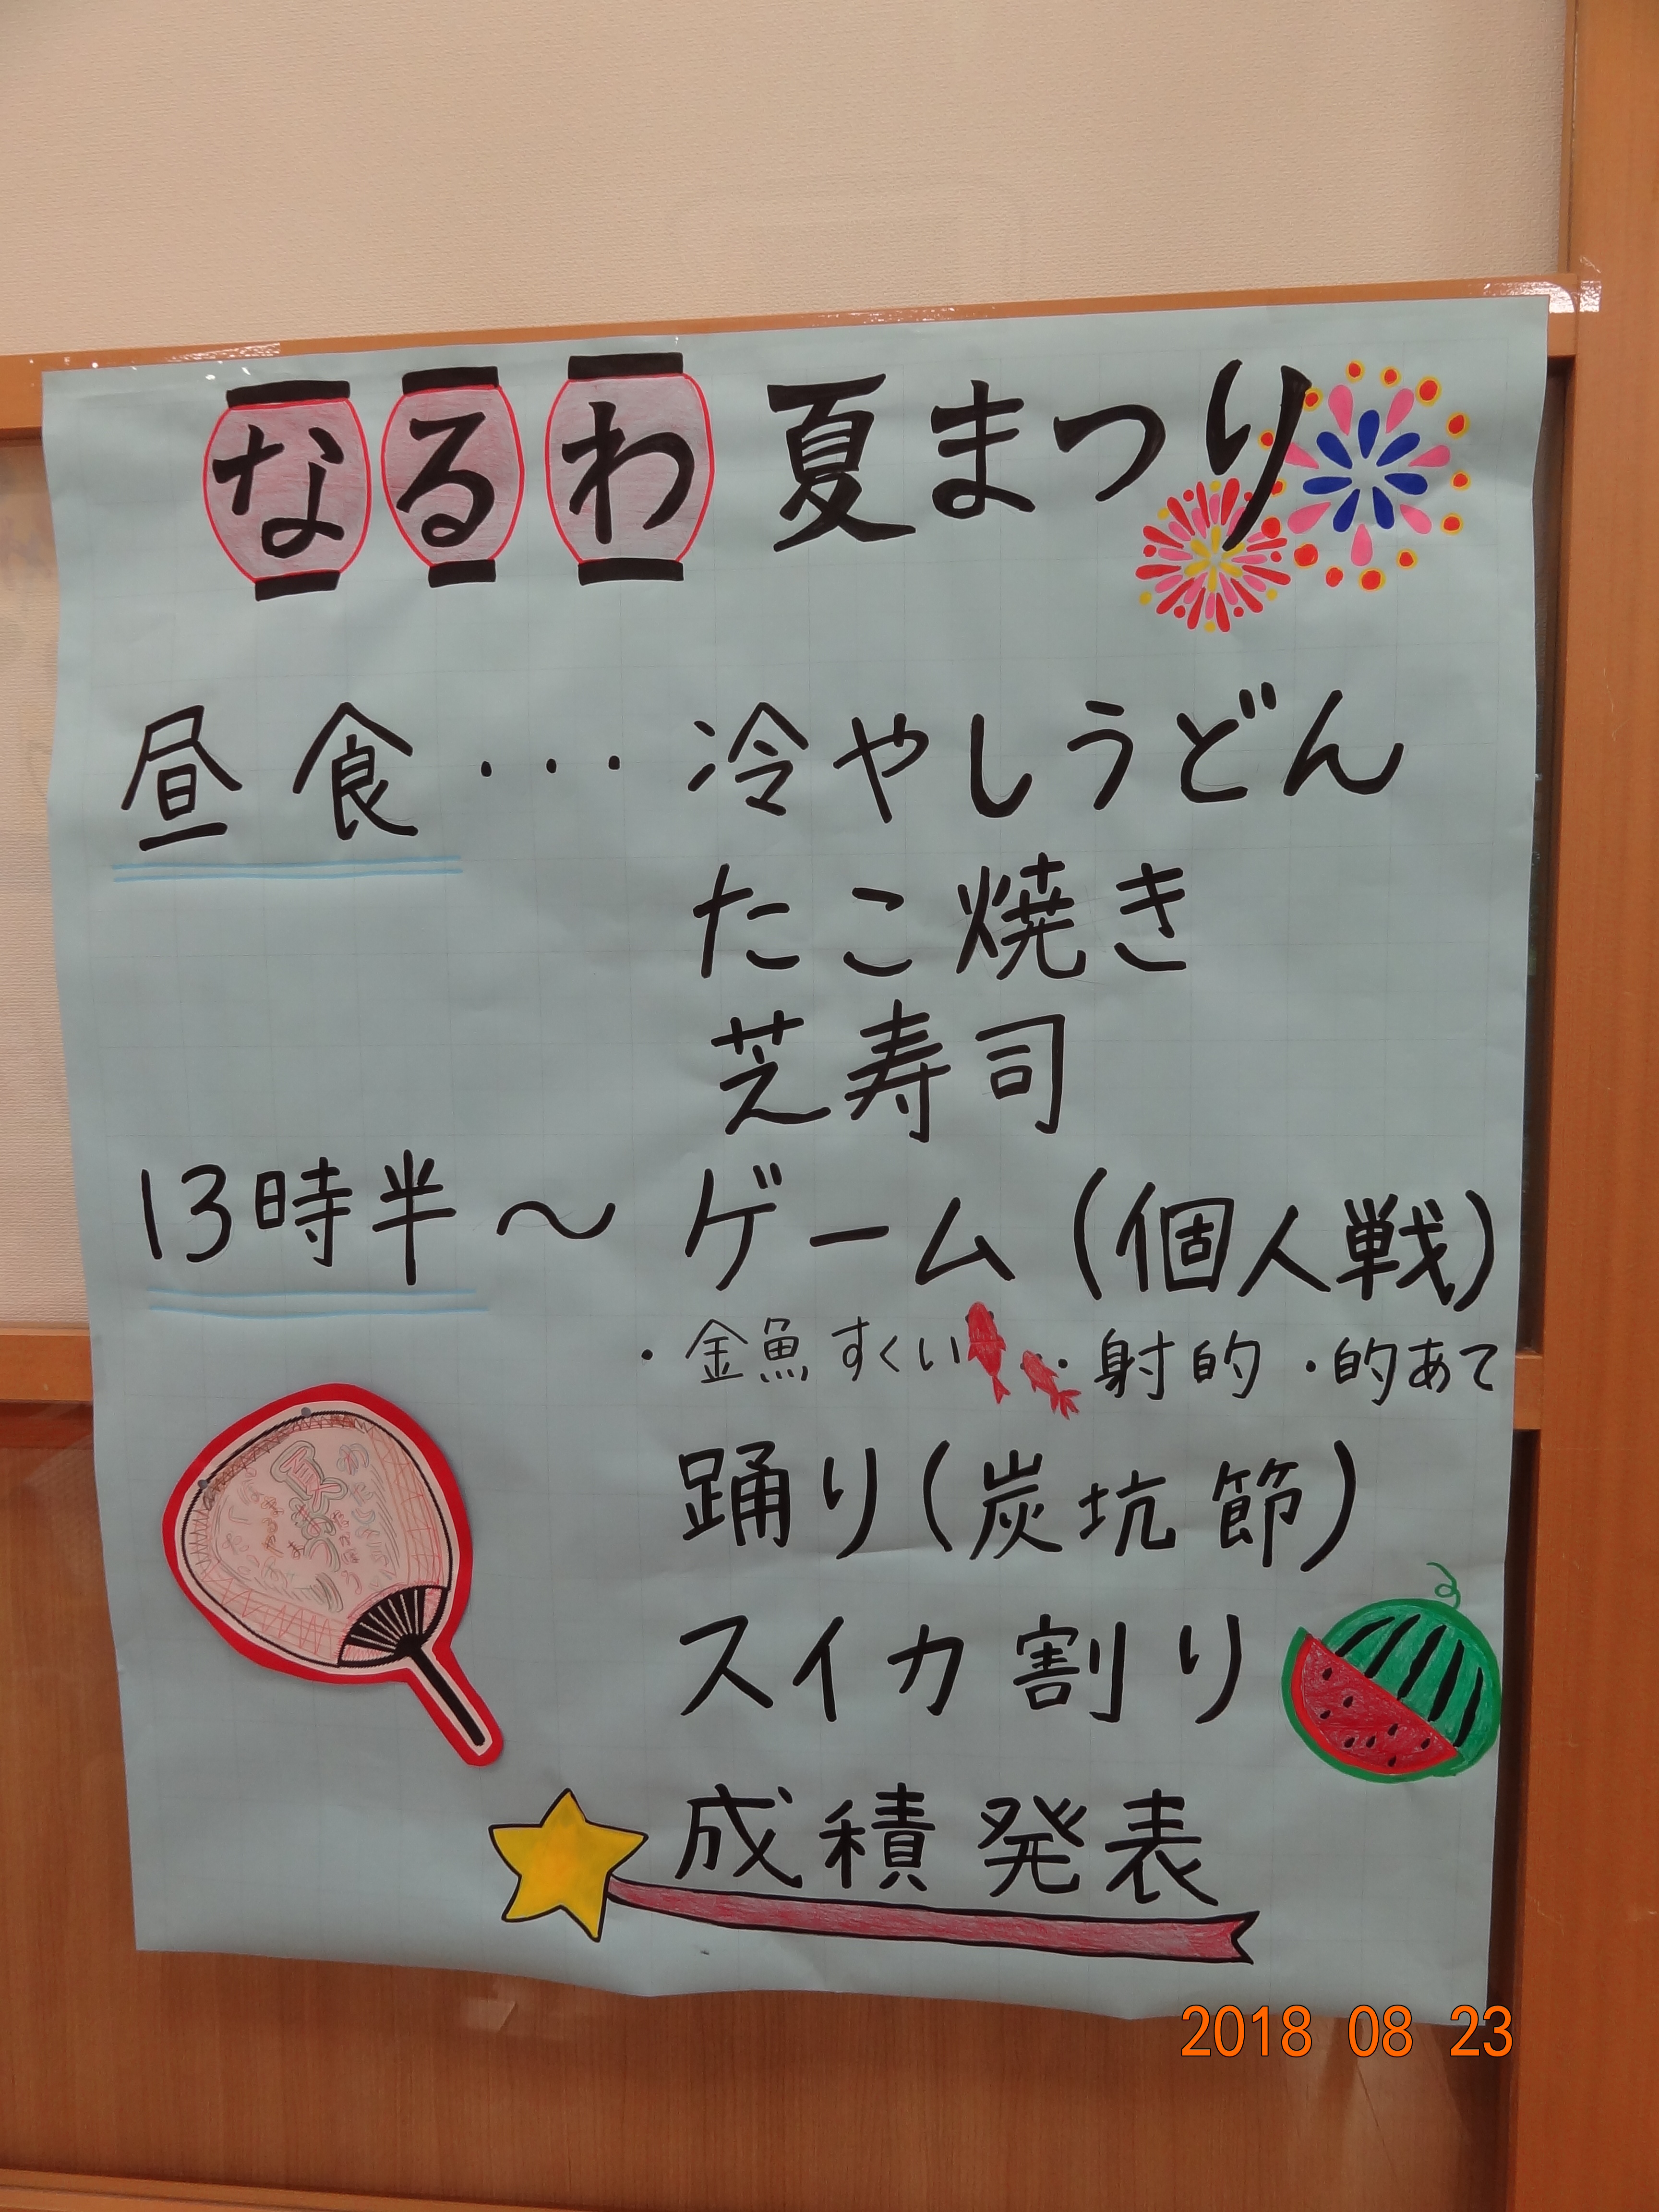 なるわ 夏まつり
昼食・・・冷やしうどん
たこ焼き
芝寿司
13時半～ゲーム(個人戦)
・金魚すくい・射的・的あて
踊り(炭坑節)
スイカ割り
成積発表
2018 08 23